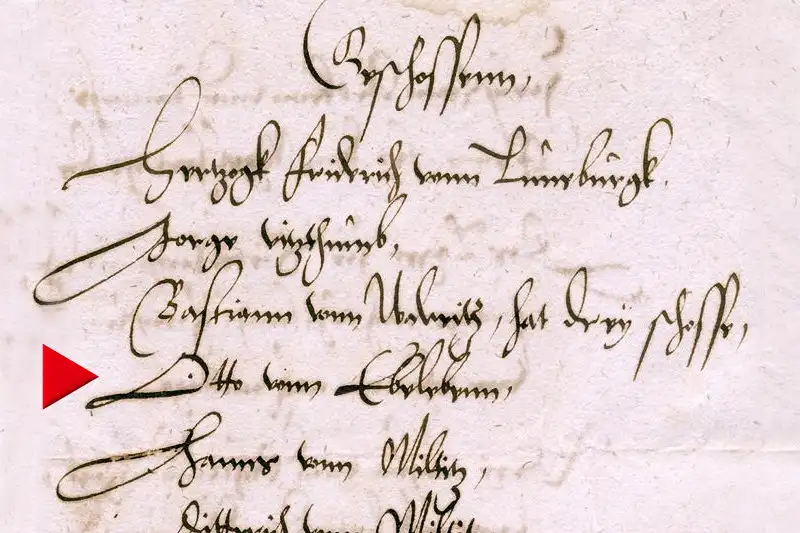 Geschossenn,
Hertzogk Friderich vonn Lüneburgk,
Jorge vitzthumb,
Bastiann vonn Walwitz, hat drey schosse,
Otto vonn Ebelebenn,
Hanns vonn Miltitz,
Dittrich vonn Miltitz